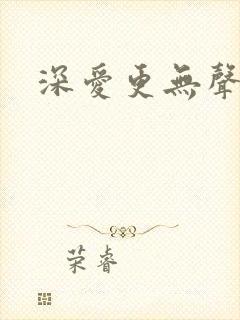 深愛更無聲
荣睿